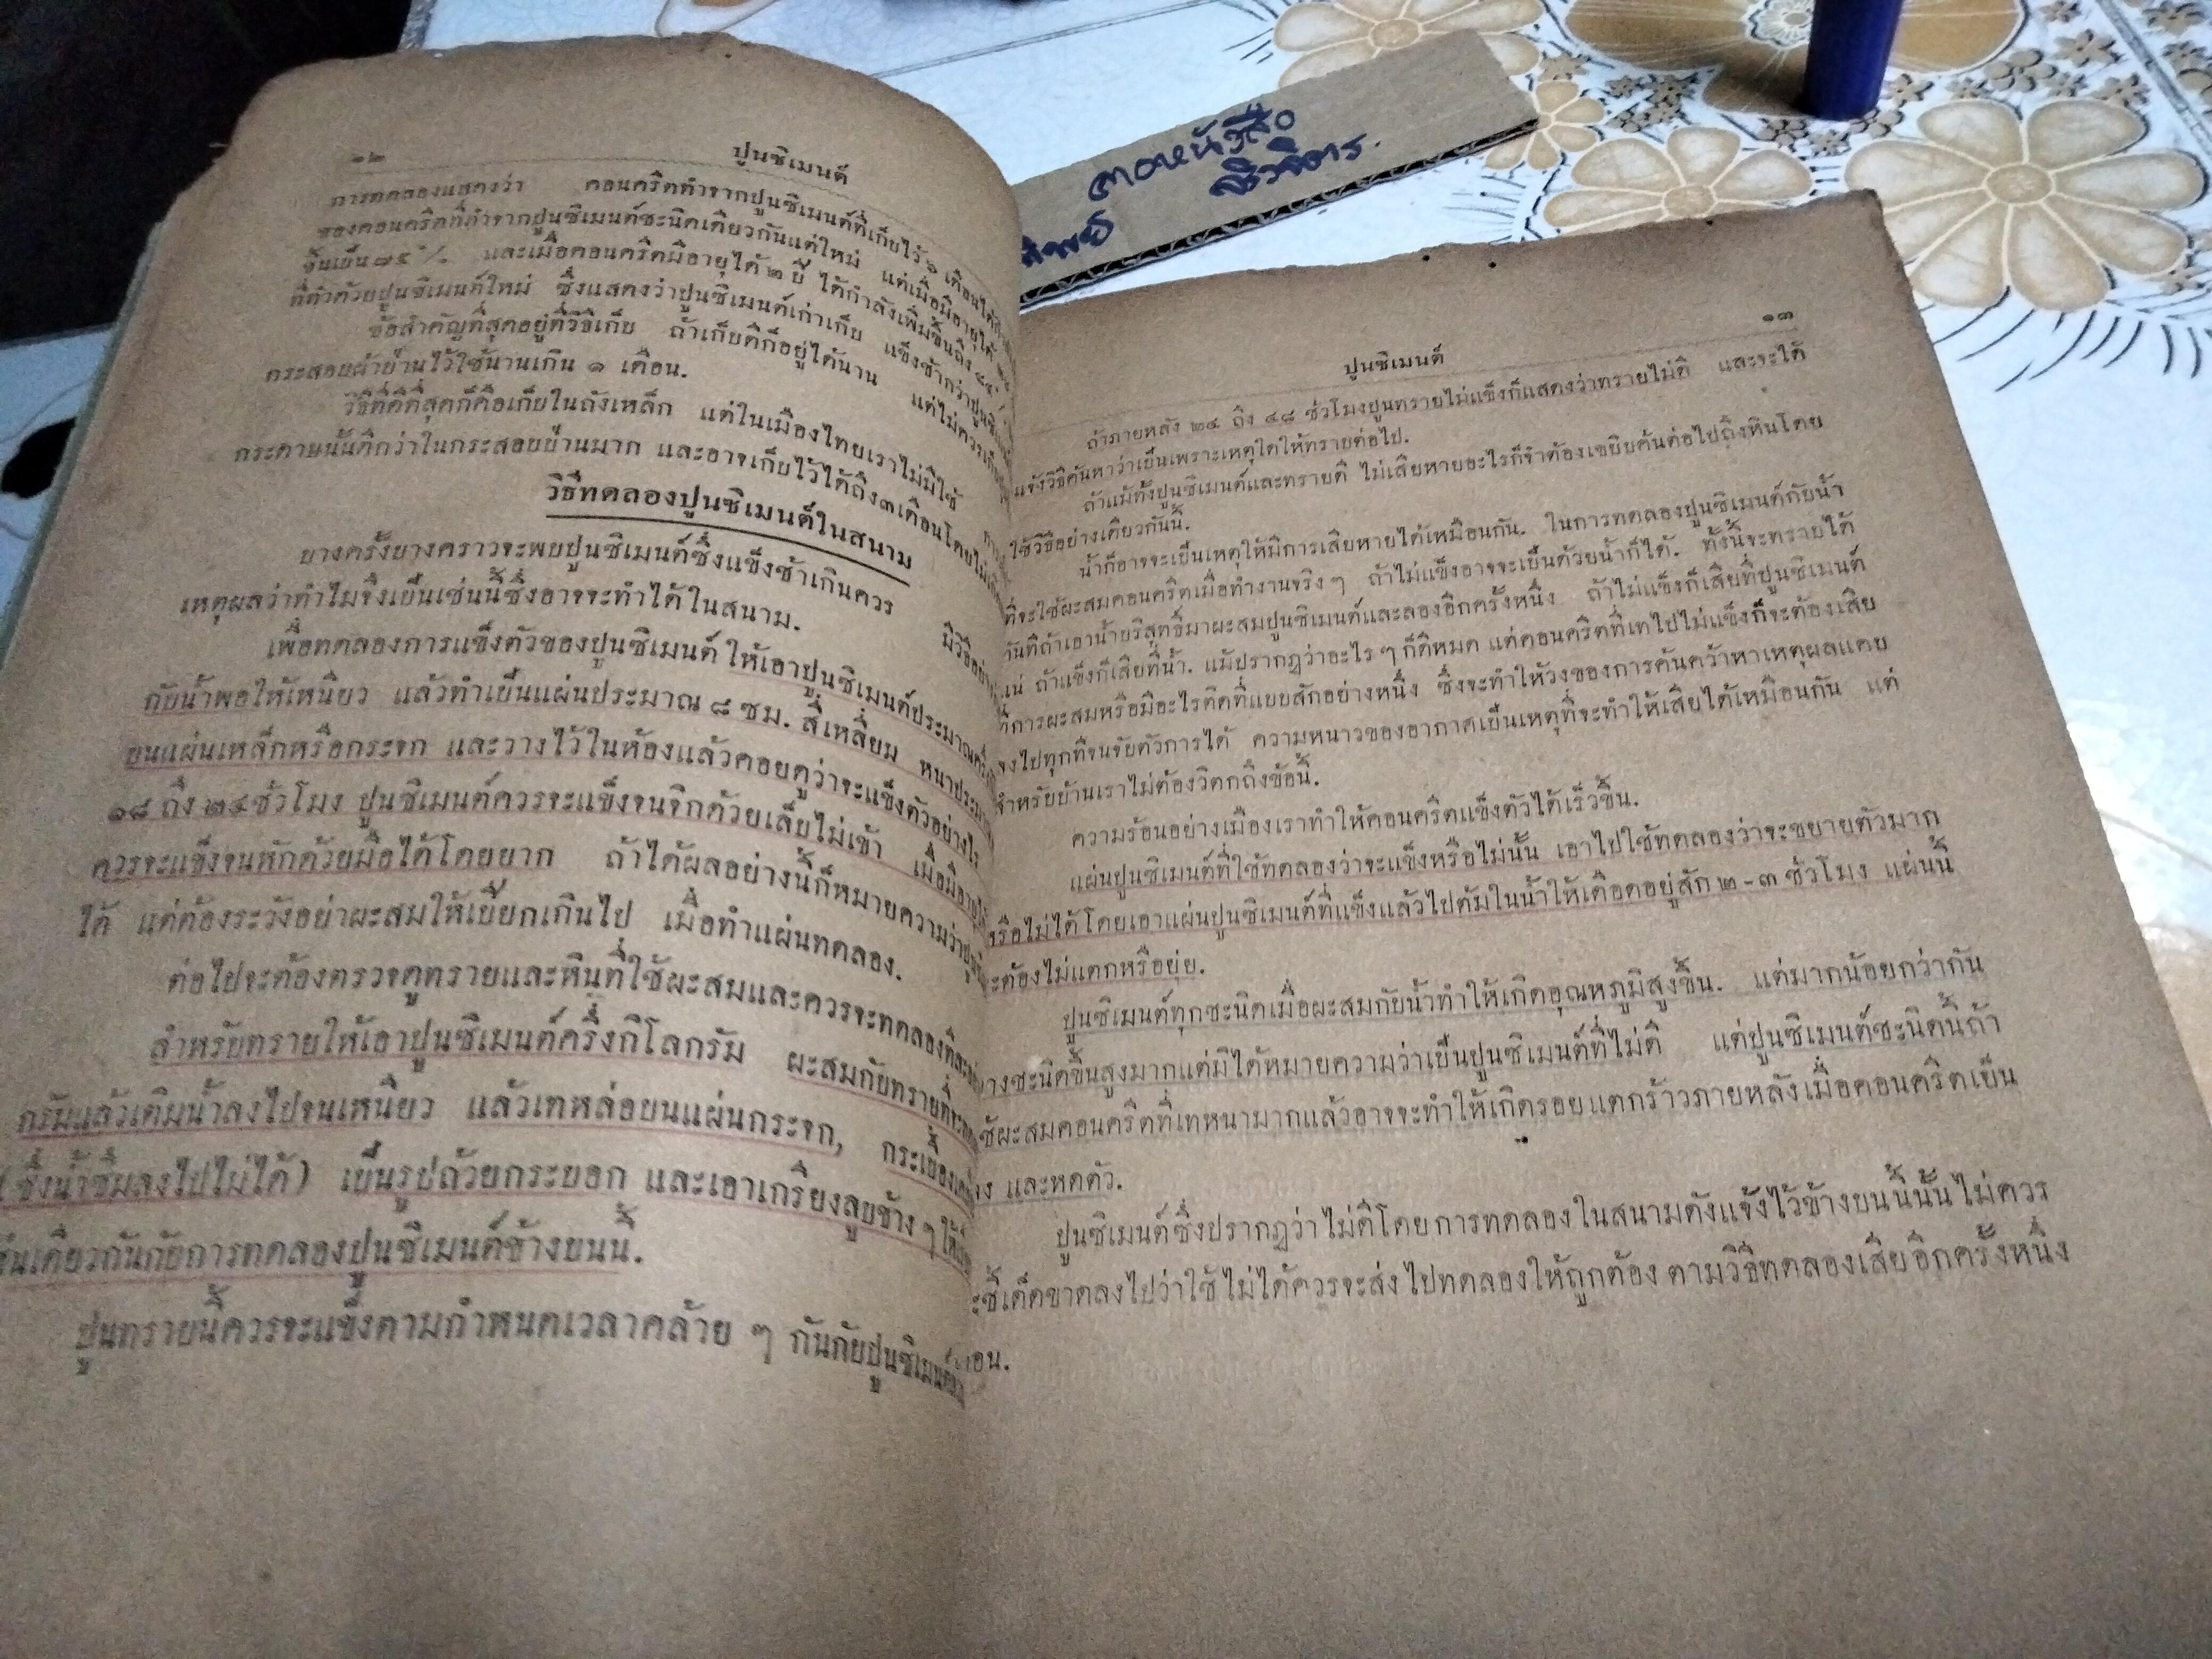 ๑๒
ปูนซิเมนต์
การทดลองแสดงว่า คอนครีตทำจากปูนซิเมนต์ที่เก็บไว้ ๖ เดือนได้
ของคอนครีตที่ทำจากปูนซิเมนต์ชะนิดเดียวกันแต่ใหม่ แต่เมื่อมีอายุได้
ขึ้นเป็น ๗๕ % และเมื่อคอนครีตมีอายุได้ ๒ ปี ได้กำลังเพิ่มขึ้นถึง
ที่ทำด้วยปูนซิเมนต์ใหม่ ซึ่งแสดงว่าปูนซิเมนต์เก่าเก็บ แข็งช้ากว่าปูนซิเมนต์
ข้อสำคัญที่สุดอยู่ที่วิธีเก็บ ถ้าเก็บดีก็อยู่ได้นาน แต่ไม่ควรเก็บ
กระสอบผ้าป่านไว้ใช้นานเกิน ๑ เดือน.
วิธีที่ดีที่สุดก็คือเก็บในถังเหล็ก แต่ในเมืองไทยเราไม่มีใช้
กระดาษนั้นดีกว่าในกระสอบป่านมาก และอาจเก็บไว้ได้ถึง ๓ เดือนโดยไม่
วิธีทดลองปูนซิเมนต์ในสนาม
บางครั้งบางคราวจะพบปูนซิเมนต์ซึ่งแข็งช้าเกินควร มีวิธีอย่าง
เหตุผลว่าทำไมจึงเป็นเช่นนี้ซึ่งอาจจะทำได้ในสนาม.
เพื่อทดลองการแข็งตัวของปูนซิเมนต์ ให้เอาปูนซิเมนต์ประมาณครึ่ง
กับน้ำพอให้เหนียว แล้วทำเป็นแผ่นประมาณ ๘ ซม. สี่เหลี่ยม หนาประมาณ
บนแผ่นเหล็กหรือกระจก และวางไว้ในห้องแล้วคอยดูว่าจะแข็งตัวอย่างไร
๑๘ ถึง ๒๔ ชั่วโมง ปูนซิเมนต์ควรจะแข็งจนจิกด้วยเล็บไม่เข้า เมื่อมีอายุได้
ควรจะแข็งจนหักด้วยมือได้โดยยาก ถ้าได้ผลอย่างนี้ก็หมายความว่าปูน
ได้ แต่ต้องระวังอย่าผะสมให้เปียกเกินไป เมื่อทำแผ่นทดลอง.
ต่อไปจะต้องตรวจดูทรายและหินที่ใช้ผะสมและควรจะทดลองทีละ
สำหรับทรายให้เอาปูนซิเมนต์ครึ่งกิโลกรัม ผะสมกับทรายที่จะ
กรัมแล้วเติมน้ำลงไปจนเหนียว แล้วเทหล่อบนแผ่นกระจก, กระเบื้อง
(ซึ่งน้ำซึมลงไปไม่ได้) เป็นรูปถ้วยกระบอก และเอาเกรียงลูบข้าง ๆ ให้
เดียวกันกับการทดลองปูนซิเมนต์ข้างบนนี้.
ปูนทรายนี้ควรจะแข็งตามกำหนดเวลาคล้าย ๆ กันกับปูนซิเมนต์
ตอหนังสือ
ชิวิหาร.
๑๓
ปูนซิเมนต์
ถ้าภายหลัง ๒๔ ถึง ๔๘ ชั่วโมงปูนทรายไม่แข็งก็แสดงว่าทรายไม่ดี และจะได้
แจ้งวิธีค้นหาว่าเป็นเพราะเหตุใดให้ทราบต่อไป.
ถ้าแม้ทั้งปูนซิเมนต์และทรายดี ไม่เสียหายอะไรก็จำต้องเขยิบค้นต่อไปถึงหินโดย
ใช้วิธีอย่างเดียวกันนี้.
น้ำก็อาจจะเป็นเหตุให้มีการเสียหายได้เหมือนกัน. ในการทดลองปูนซิเมนต์กับน้ำ
ที่จะใช้ผะสมคอนครีตเมื่อทำงานจริง ๆ ถ้าไม่แข็งอาจจะเป็นด้วยน้ำก็ได้. ทั้งนี้จะทราบได้
ทันทีถ้าเอาน้ำบริสุทธิ์มาผะสมปูนซิเมนต์และลองอีกครั้งหนึ่ง ถ้าไม่แข็งก็เสียที่ปูนซิเมนต์
แน่ ถ้าแข็งก็เสียที่น้ำ. แม้ปรากฏว่าอะไร ๆ ก็ดีหมด แต่คอนครีตที่เทไปไม่แข็งก็จะต้องเสีย
ที่การผะสมหรือมีอะไรติดที่แบบสักอย่างหนึ่ง ซึ่งจะทำให้วงของการค้นคว้าหาเหตุผลแคบ
ลงไปทุกทีจนจับตัวการได้ ความหนาวของอากาศเป็นเหตุที่จะทำให้เสียได้เหมือนกัน แต่
สำหรับบ้านเราไม่ต้องวิตกถึงข้อนี้.
ความร้อนอย่างเมืองเราทำให้คอนครีตแข็งตัวได้เร็วขึ้น.
แผ่นปูนซิเมนต์ที่ใช้ทดลองว่าจะแข็งหรือไม่นั้น เอาไปใช้ทดลองว่าจะขยายตัวมาก
หรือไม่ได้โดยเอาแผ่นปูนซิเมนต์ที่แข็งแล้วไปต้มในน้ำให้เดือดอยู่สัก ๒ - ๓ ชั่วโมง แผ่นนี้
จะต้องไม่แตกหรือยุ่ย.
ปูนซิเมนต์ทุกชะนิดเมื่อผะสมกับน้ำทำให้เกิดอุณหภูมิสูงขึ้น. แต่มากน้อยกว่ากัน
บางชะนิดขึ้นสูงมากแต่มิได้หมายความว่าเป็นปูนซิเมนต์ที่ไม่ดี แต่ปูนซิเมนต์ชะนิดนี้ถ้า
ใช้ผะสมคอนครีตที่เทหนามากแล้วอาจจะทำให้เกิดรอยแตกร้าวภายหลังเมื่อคอนครีตเย็น
ลง และหดตัว.
ปูนซิเมนต์ซึ่งปรากฏว่าไม่ดีโดยการทดลองในสนามดังแจ้งไว้ข้างบนนี้นั้นไม่ควร
จะชี้เด็ดขาดลงไปว่าใช้ไม่ได้ควรจะส่งไปทดลองให้ถูกต้อง ตามวิธีทดลองเสียอีกครั้งหนึ่ง
ก่อน.